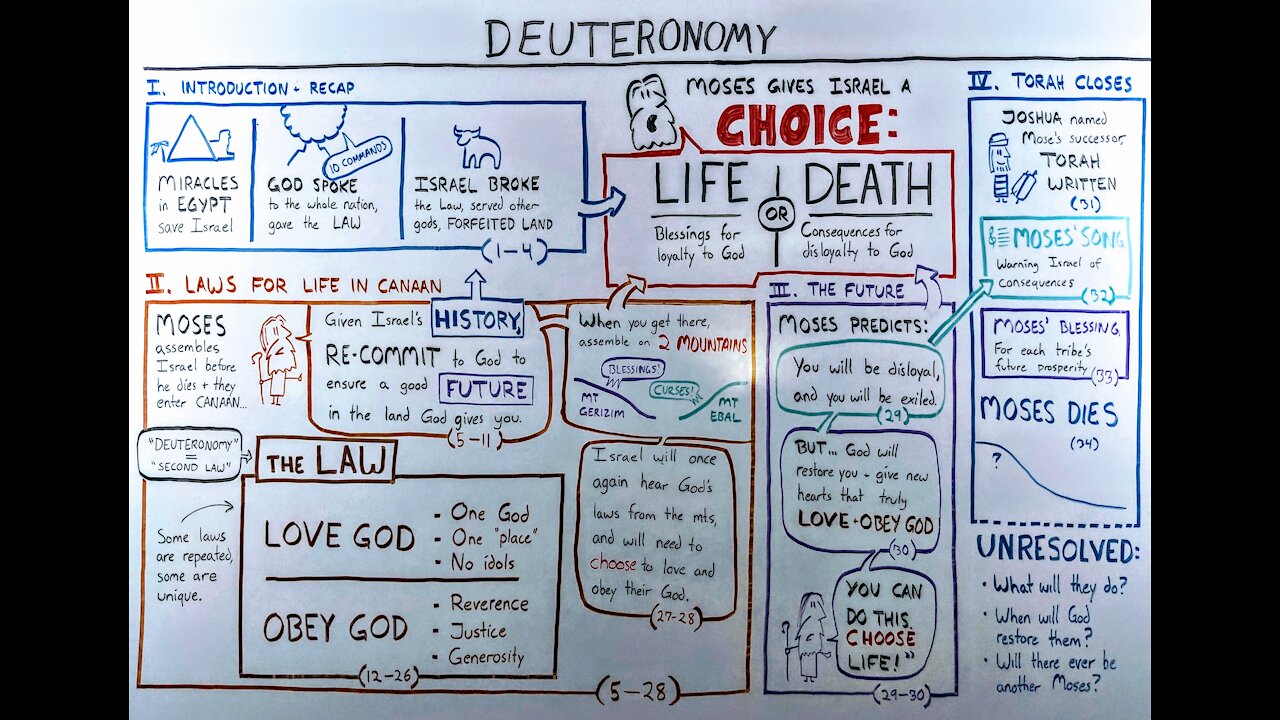 DEUTERONOMY
I. INTRODUCTION + RECAP
MIRACLES
in EGYPT
save Israel
10 COMMANDS
GOD SPOKE
to the whole nation,
gave the LAW
ISRAEL BROKE
the Law, served other
gods, FORFEITED LAND
(1-4)
MOSES GIVES ISRAEL A
CHOICE:
LIFE
Blessings for
loyalty to God
OR
DEATH
Consequences for
disloyalty to God
II. LAWS FOR LIFE IN CANAAN
MOSES
assembles
Israel before
he dies + they
enter CANAAN...
Given Israel's HISTORY,
RE-COMMIT to God to
ensure a good FUTURE
in the land God gives you.
(5-11)
"DEUTERONOMY"
=
"SECOND LAW"
Some laws
are repeated,
some are
unique.
THE LAW
LOVE GOD
- One God
- One "place"
- No idols
OBEY GOD
- Reverence
- Justice
- Generosity
(12-26)
When you get there,
assemble on 2 MOUNTAINS
BLESSINGS!
CURSES!
MT
GERIZIM
MT
EBAL
Israel will once
again hear God's
laws from the mts,
and will need to
choose to love and
obey their God.
(27-28)
(5-28)
III. THE FUTURE
MOSES PREDICTS:
You will be disloyal,
and you will be exiled.
(29)
BUT... God will
restore you + give new
hearts that truly
LOVE + OBEY GOD
(30)
YOU CAN
DO THIS.
CHOOSE
LIFE!"
(29-30)
IV. TORAH CLOSES
JOSHUA named
Mose's successor,
TORAH
WRITTEN
(31)
MOSES' SONG
Warning Israel of
Consequences
(32)
MOSES' BLESSING
For each tribe's
future prosperity
(33)
MOSES DIES
(34)
?
UNRESOLVED:
• What will they do?
• When will God
restore them?
• Will there ever be
another Moses?